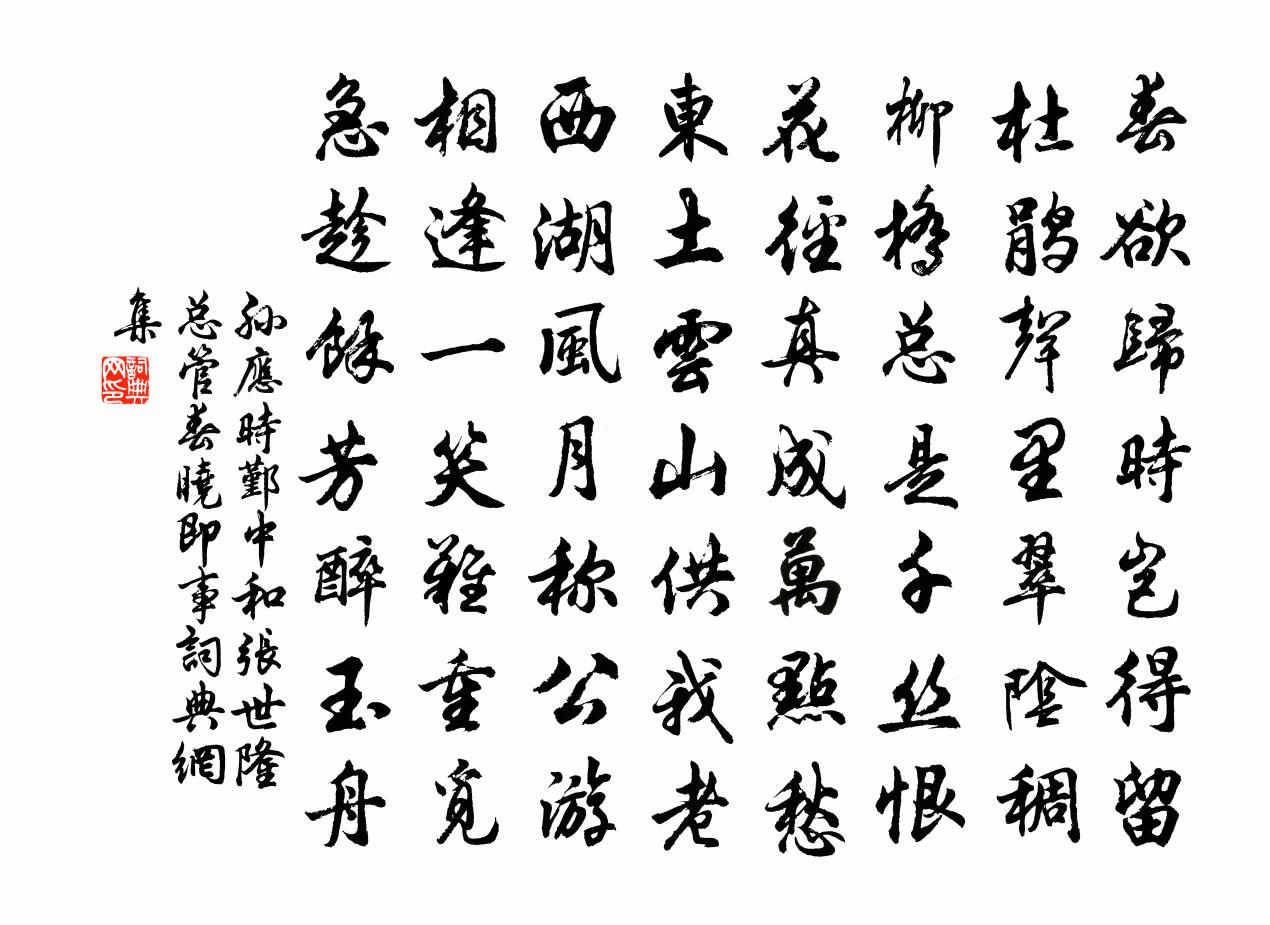 春欲歸時岂得留
杜鹃聲里翠陰稠
柳橋总是千丝恨
花徑真成萬點愁
東土雲山供我老
西湖風月称公游
相逢一笑難重觅
急趁餘芳醉玉舟
孙應時鄞中和張世隆
总管春曉即事詞典網
集
詞典网印